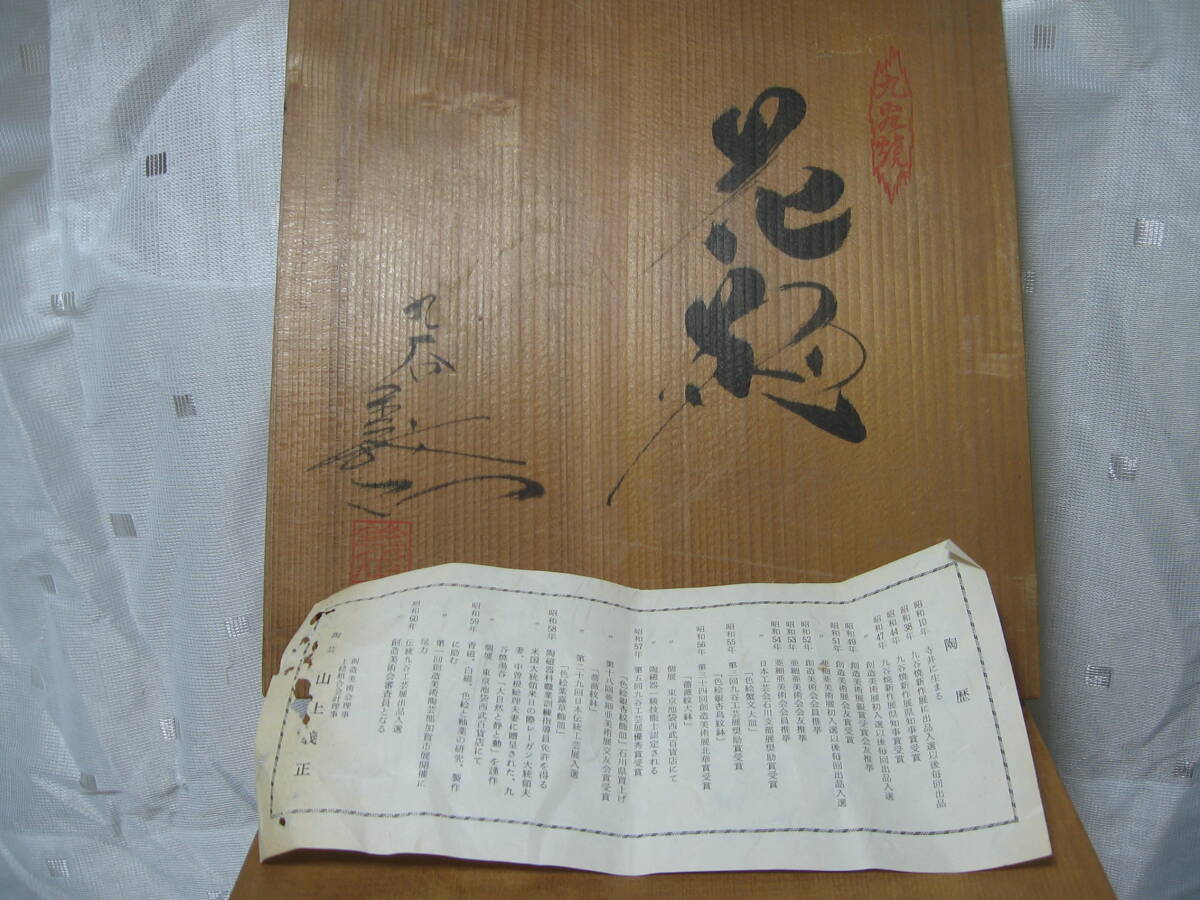 九谷焼
花瓶
九谷
陶歴
昭和10年 寺井に生まる
昭和38年 九谷焼新作展に出品入選以後毎回出品
昭和44年 九谷焼新作展県知事賞受賞
昭和47年 九谷焼新作展県知事賞受賞
創造美術展初入選以後毎回出品入選
昭和49年 創造美術展銀賞受賞会友推挙
昭和51年 創造美術展会友賞受賞
昭和52年 亜細亜美術展初入選以後毎回出品入選
昭和53年 亜細亜美術会会友推挙
昭和54年 創造美術会会員推挙
〃 日本工芸会石川支部展奨励賞受賞
「色絵蟹文大皿」
昭和55年 第三回九谷工芸展奨励賞受賞
「色絵銀杏鳥紋鉢」
昭和56年 第三十四回創造美術展北華賞受賞
「薔薇紋大鉢」
〃 個展 東京池袋西武百貨店にて
〃 陶磁器一級技能士認定される
昭和57年 第五回九谷工芸展優秀賞受賞
「色絵銀杏紋飾皿」石川県買上げ
〃 第十八回亜細亜美術展交友会賞受賞
「薔薇紋鉢」
〃 第二十九回日本伝統工芸展入選
「色絵葉鶏草飾皿」
昭和58年 陶磁器科職業訓練指導員免許を得る
〃 米国大統領来日の際レーガン大統領夫
妻、中曽根総理夫妻に贈呈された、九
谷焼湯呑「大自然と静と動」を謹作
昭和59年 個展、東京池袋西武百貨店にて
〃 青磁、白磁、色絵と釉薬の研究、製作
に励む
〃 第一回創造美術陶芸部加賀市展開催に
尽力
昭和60年 伝統九谷工芸展出品入選
創造美術会審査員となる
創造美術会理事
上絵組合会計理事
陶芸 山上義正